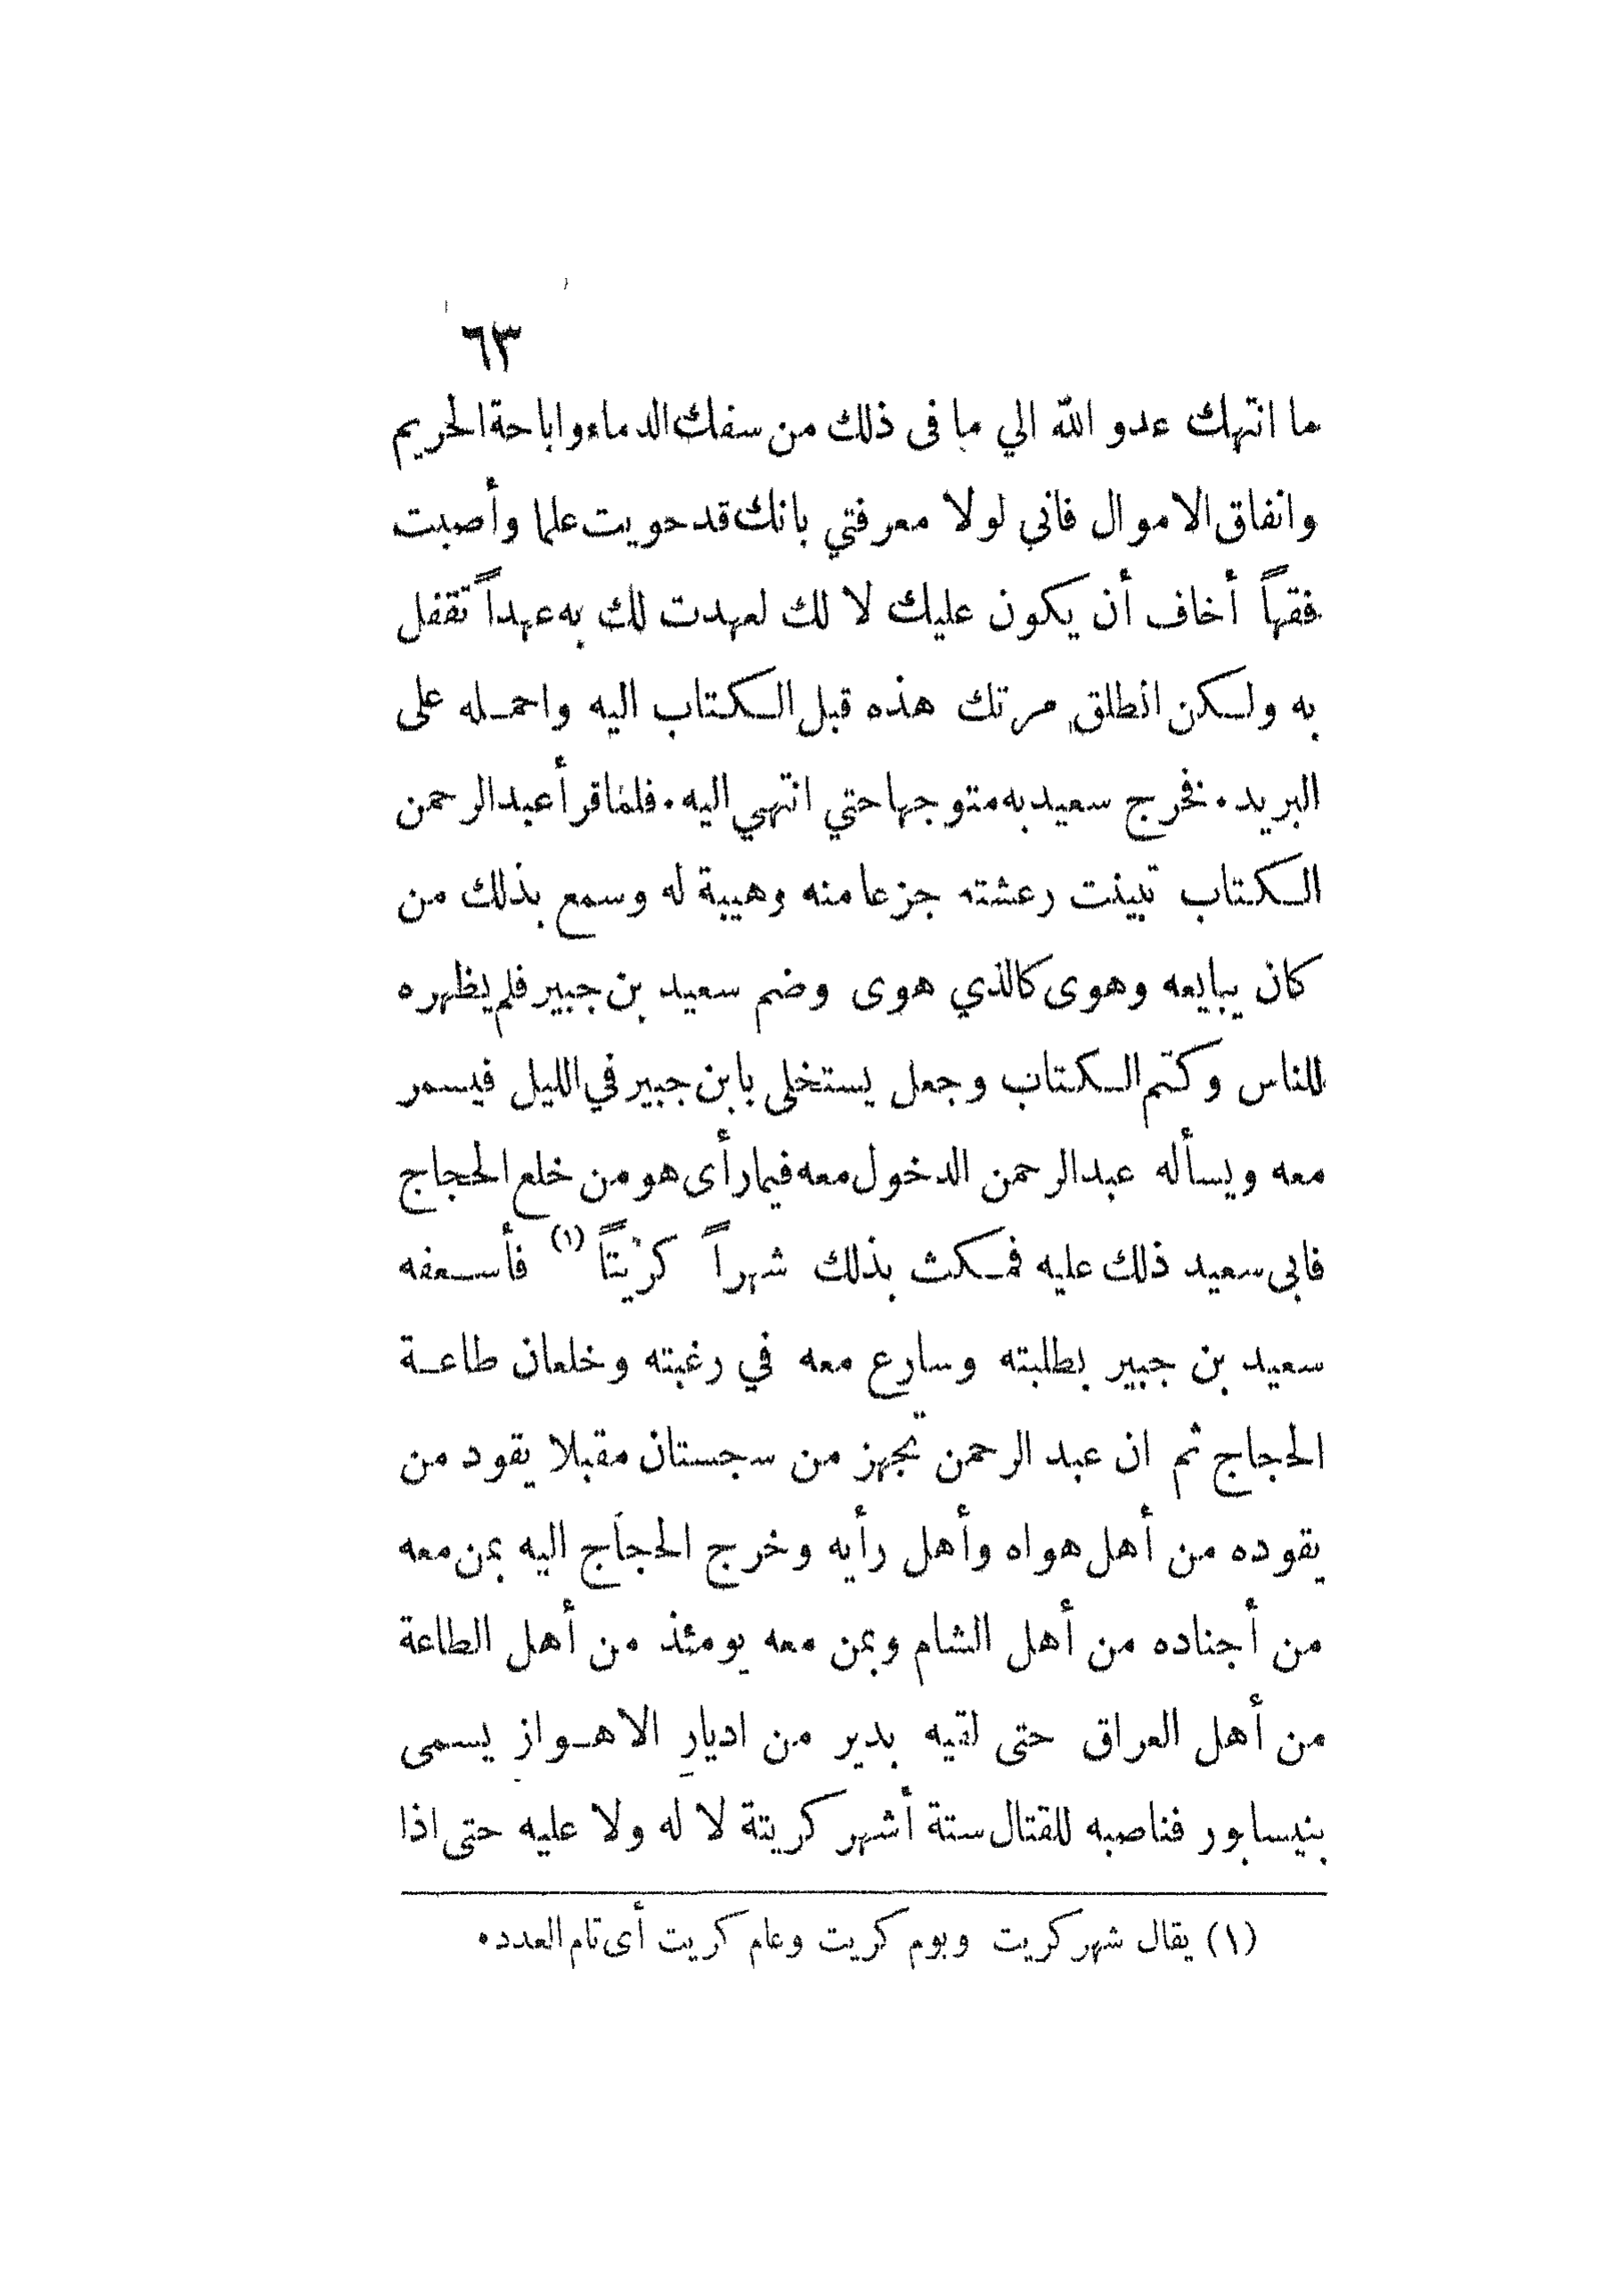 ٦٣
ما انتهك عدو الله الي ما فى ذلك من سفك الدماء واباحة الحريم
وانفاق الاموال فاني لولا معرفتي بانك قد حويت علما وأصبت
فقهاً أخاف أن يكون عليك لا لك لعهدت لك به عهداً تقفل
به ولكن انطلق مرتك هذه قبل الكتاب اليه واحمله على
البريد. فخرج سعيد به متوجها حتي انتهي اليه. فلما قرأ عبد الرحمن
الكتاب تبينت رعشته جزعا منه وهيبة له وسمع بذلك من
كان يبايعه وهوى كالذي هوى وضم سعيد بن جبير فلم يظهره
للناس وكتم الكتاب وجعل يستخلى بابن جبير في الليل فيسمر
معه ويسأله عبد الرحمن الدخول معه فيما رأى هو من خلع الحجاج
فابى سعيد ذلك عليه فمكث بذلك شهراً كريتاً (١) فأسعفه
سعيد بن جبير بطلبته وسارع معه في رغبته وخلعان طاعة
الحجاج ثم ان عبد الرحمن تجهز من سجستان مقبلا يقود من
يقوده من أهل هواه وأهل رأيه وخرج الحجاج اليه بمن معه
من أجناده من أهل الشام وبمن معه يومئذ من أهل الطاعة
من أهل العراق حتى لقيه بدير من اديار الاهواز يسمى
بنيسابور فناصبه للقتال ستة أشهر كريتة لا له ولا عليه حتى اذا
(١) يقال شهر كريت ويوم كريت وعام كريت أى تام العدد.